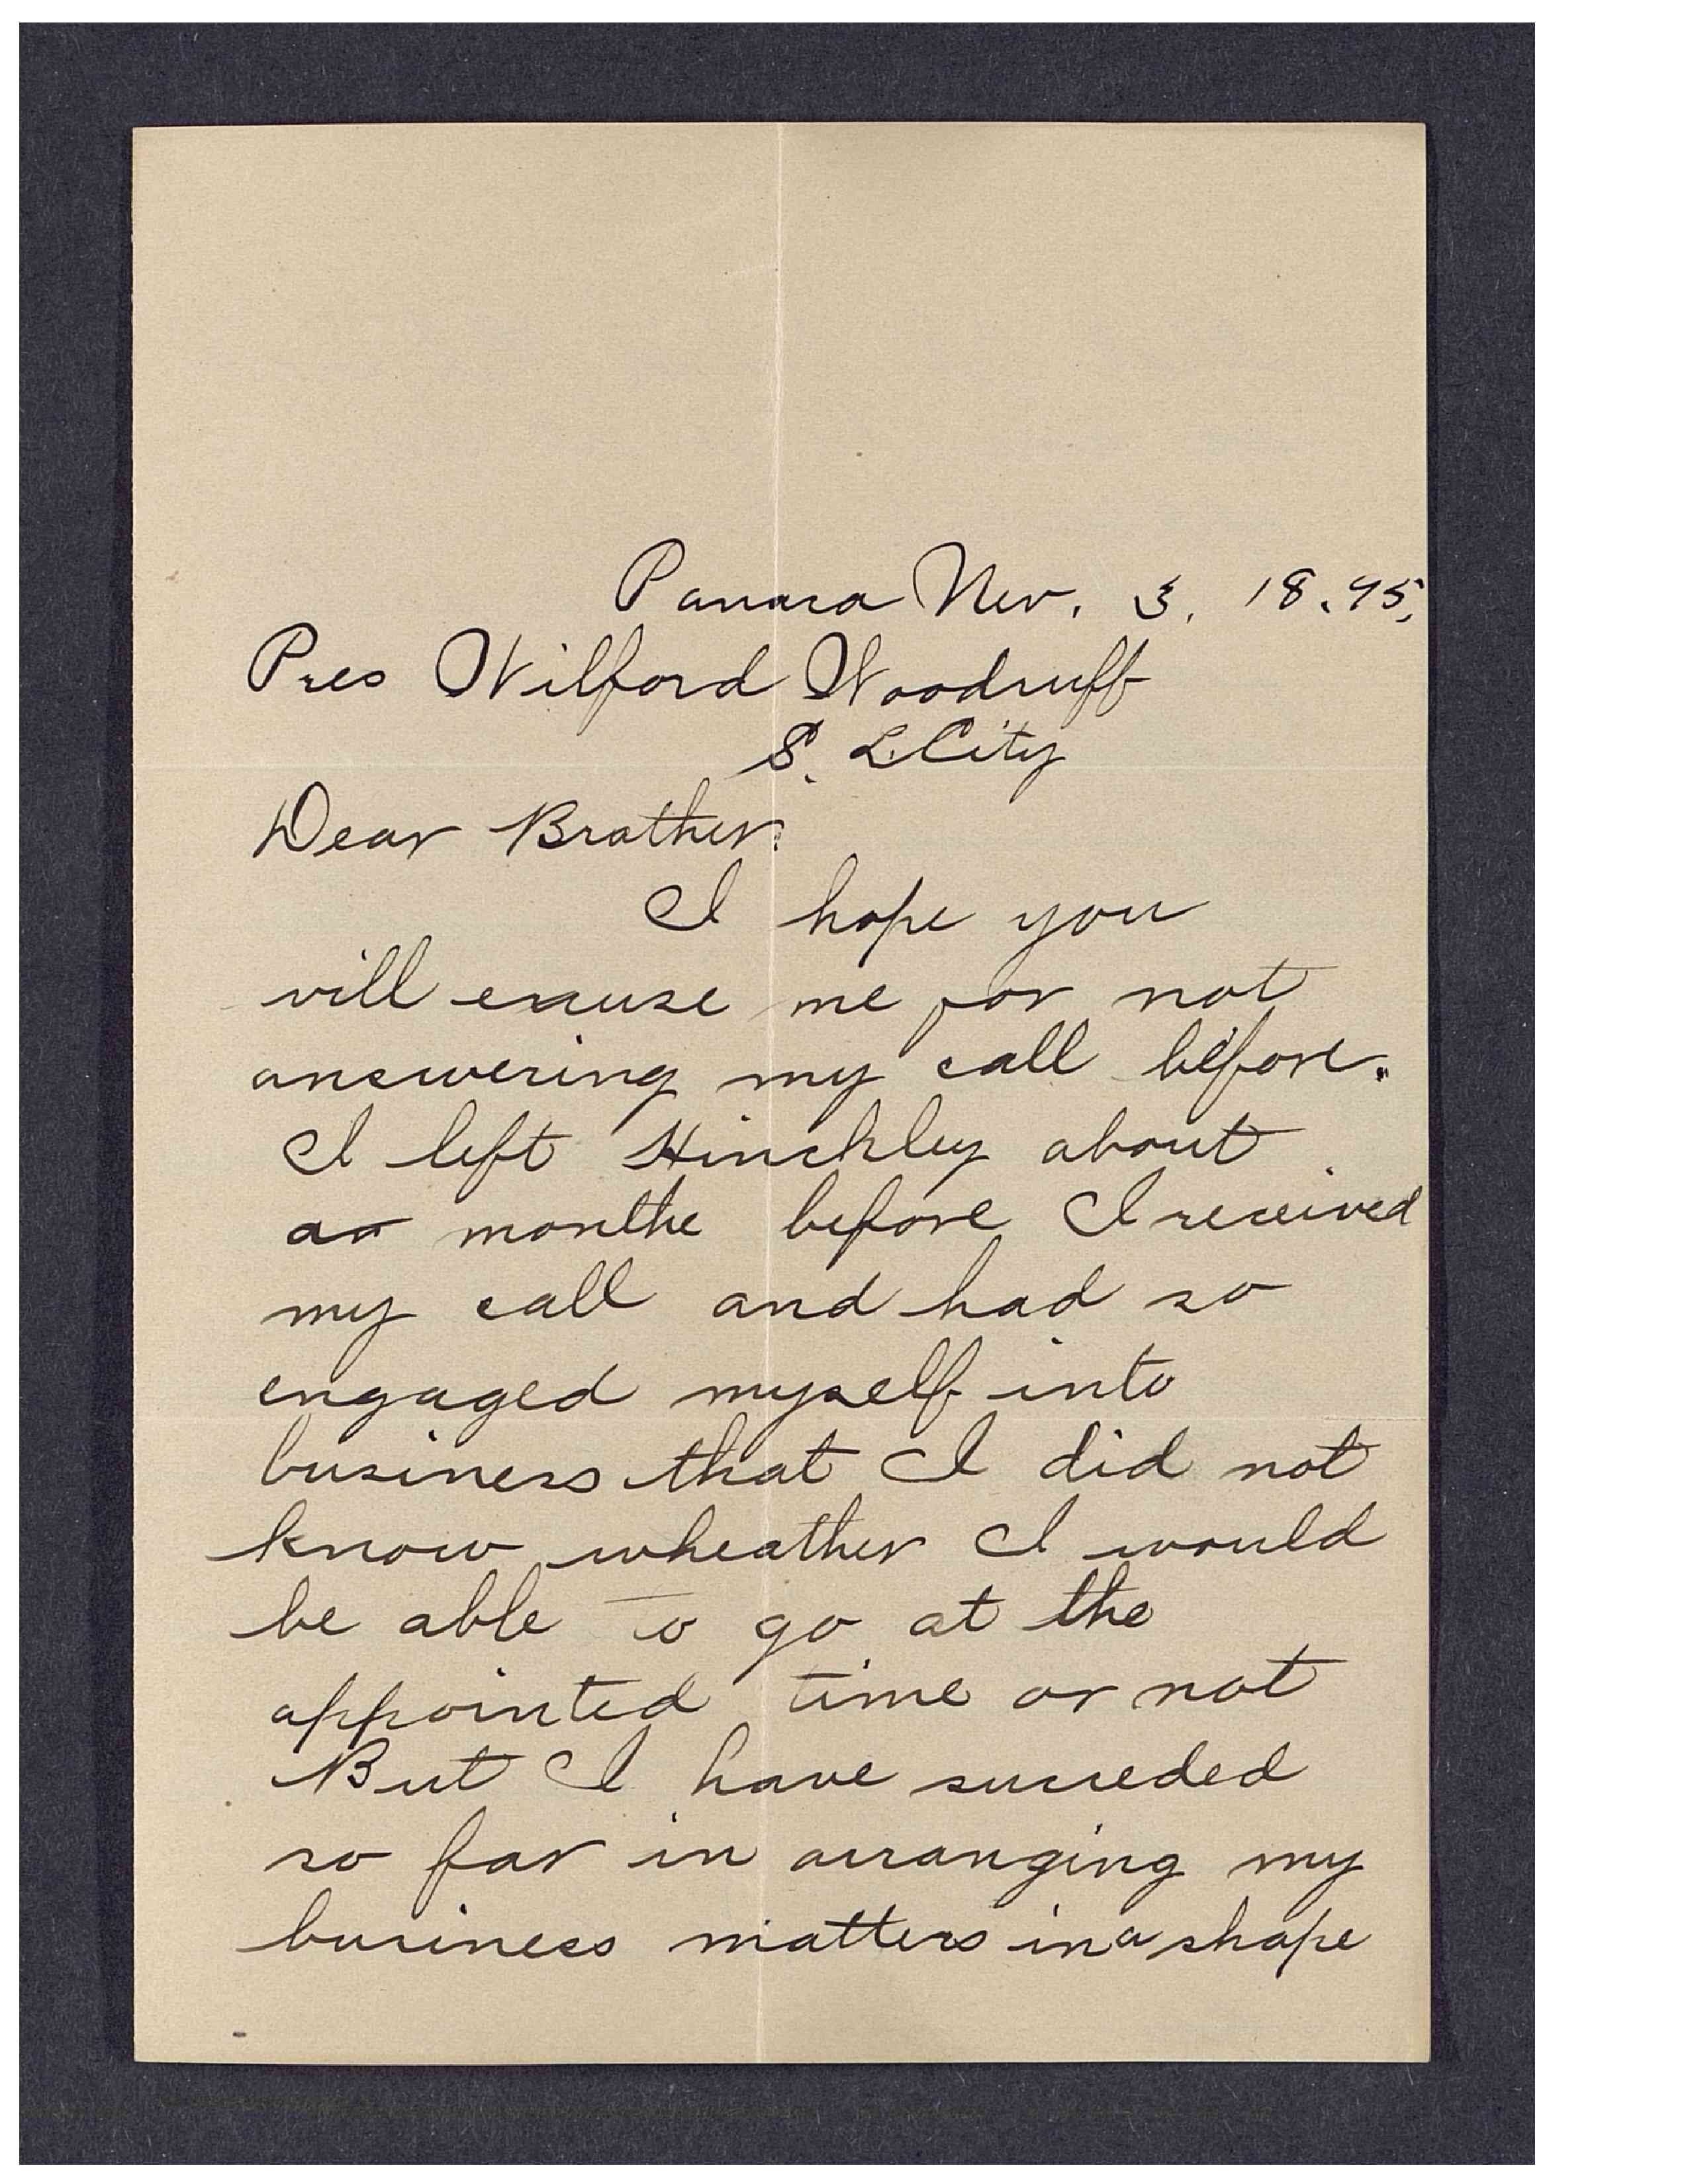 Panaca Nev. 3. 18.95.
Pres Wilford Woodruff
S. L. City
Dear Brother.
I hope you
will excuse me for not
answering my call before.
I left Hinckley about
a monthe before I received
my call and had so
engaged myself into
business that I did not
know wheather I would
be able to go at the
appointed time or not
But I have succeded
so far in arranging my
business matters in a shape